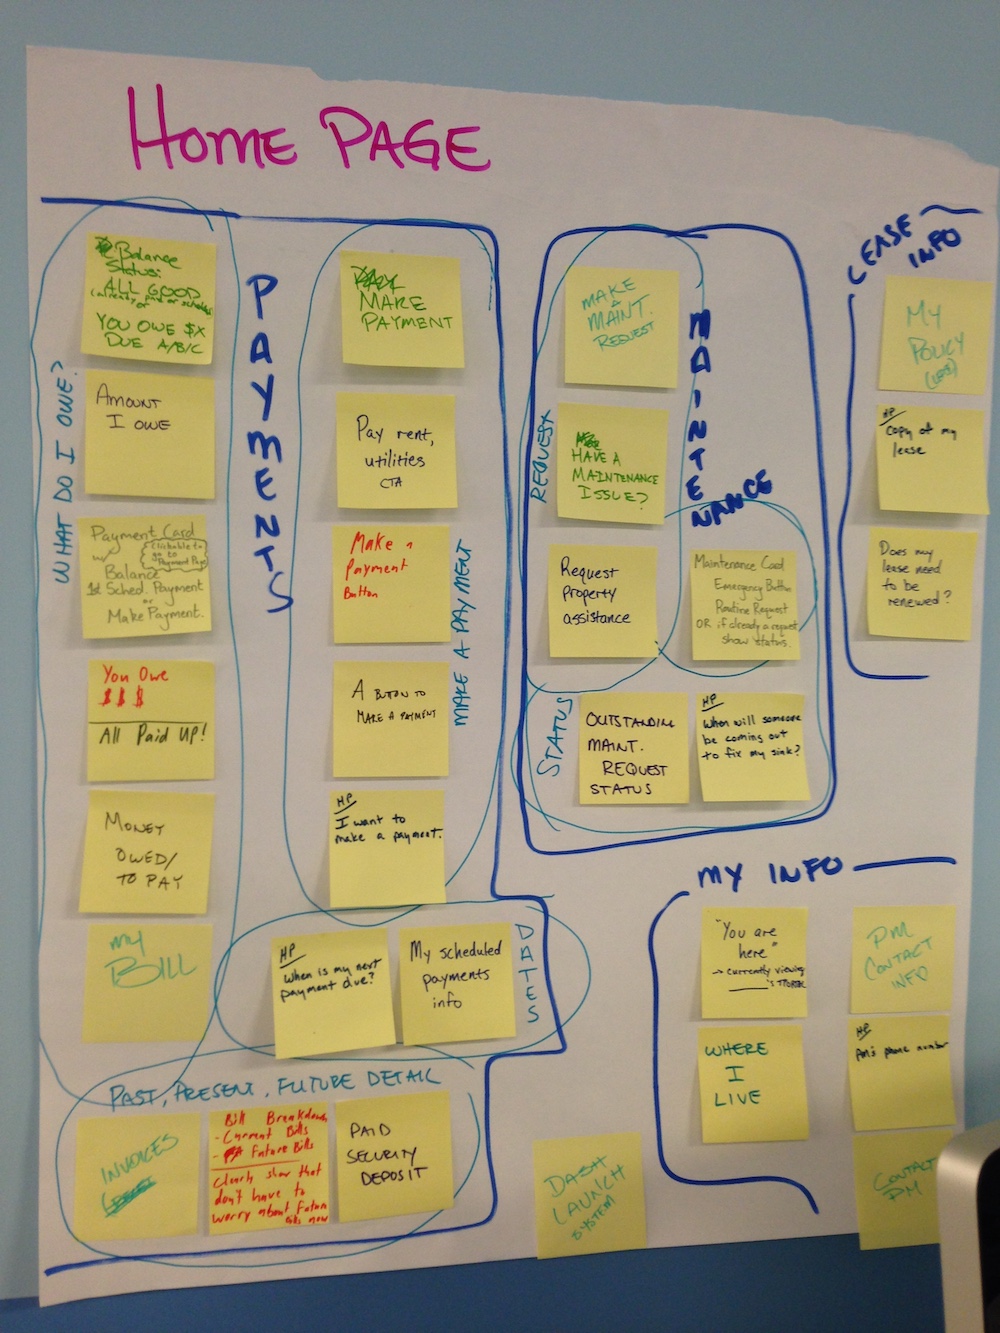 HOME PAGE
WHAT DO I OWE?
Balance
Status:
ALL GOOD
(already paid or scheduled)
or
YOU OWE $X
DUE A/B/C
AMOUNT
I OWE
Payment Card
w/
Clickable to
go to
Payment Page
Balance
1st Sched. Payment
or
Make Payment.
You Owe
$ $ $
All Paid UP!
MONEY
OWED/
TO PAY
My
BILL
PAYMENTS
MAKE
PAYMENT
Pay rent,
utilities
CTA
Make a
Payment
Button
A BUTTON TO
MAKE A PAYMENT
HP
I want to
make a payment.
MAKE A PAYMENT
HP
When is my next
payment due?
My scheduled
payments
info
DATES
PAST, PRESENT, FUTURE DETAIL
INVOICES
Bill Breakdown
- Current Bills
- Future Bills
Clearly show that
don't have to
worry about Future
Bills now
PAID
SECURITY
DEPOSIT
MAINTENANCE
REQUEST
MAKE
A
MAINT.
REQUEST
HAVE A
MAINTENANCE
ISSUE?
Request
property
assistance
Maintenance Card
Emergency Button
Routine Request
OR if already a request
show status.
STATUS
OUTSTANDING
MAINT.
REQUEST
STATUS
HP
When will someone
be coming out
to fix my sink?
LEASE
INFO
MY
POLICY
(LEASE)
HP
Copy of my
lease
Does my
lease need
to be
renewed?
MY INFO
"You are
here"
→ currently viewing
WHERE
I
LIVE
PM
CONTACT
INFO
HP
PM's phone number
CONTACT
PM
DASH
LAUNCH
SYSTEM